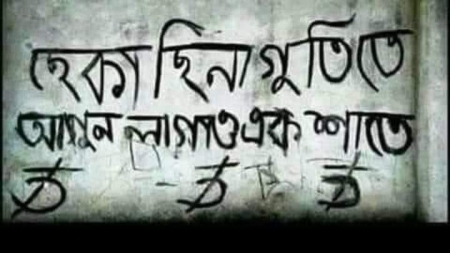 হেকা হিনা গুতিতে
আগুন লাগাও এক শাতে